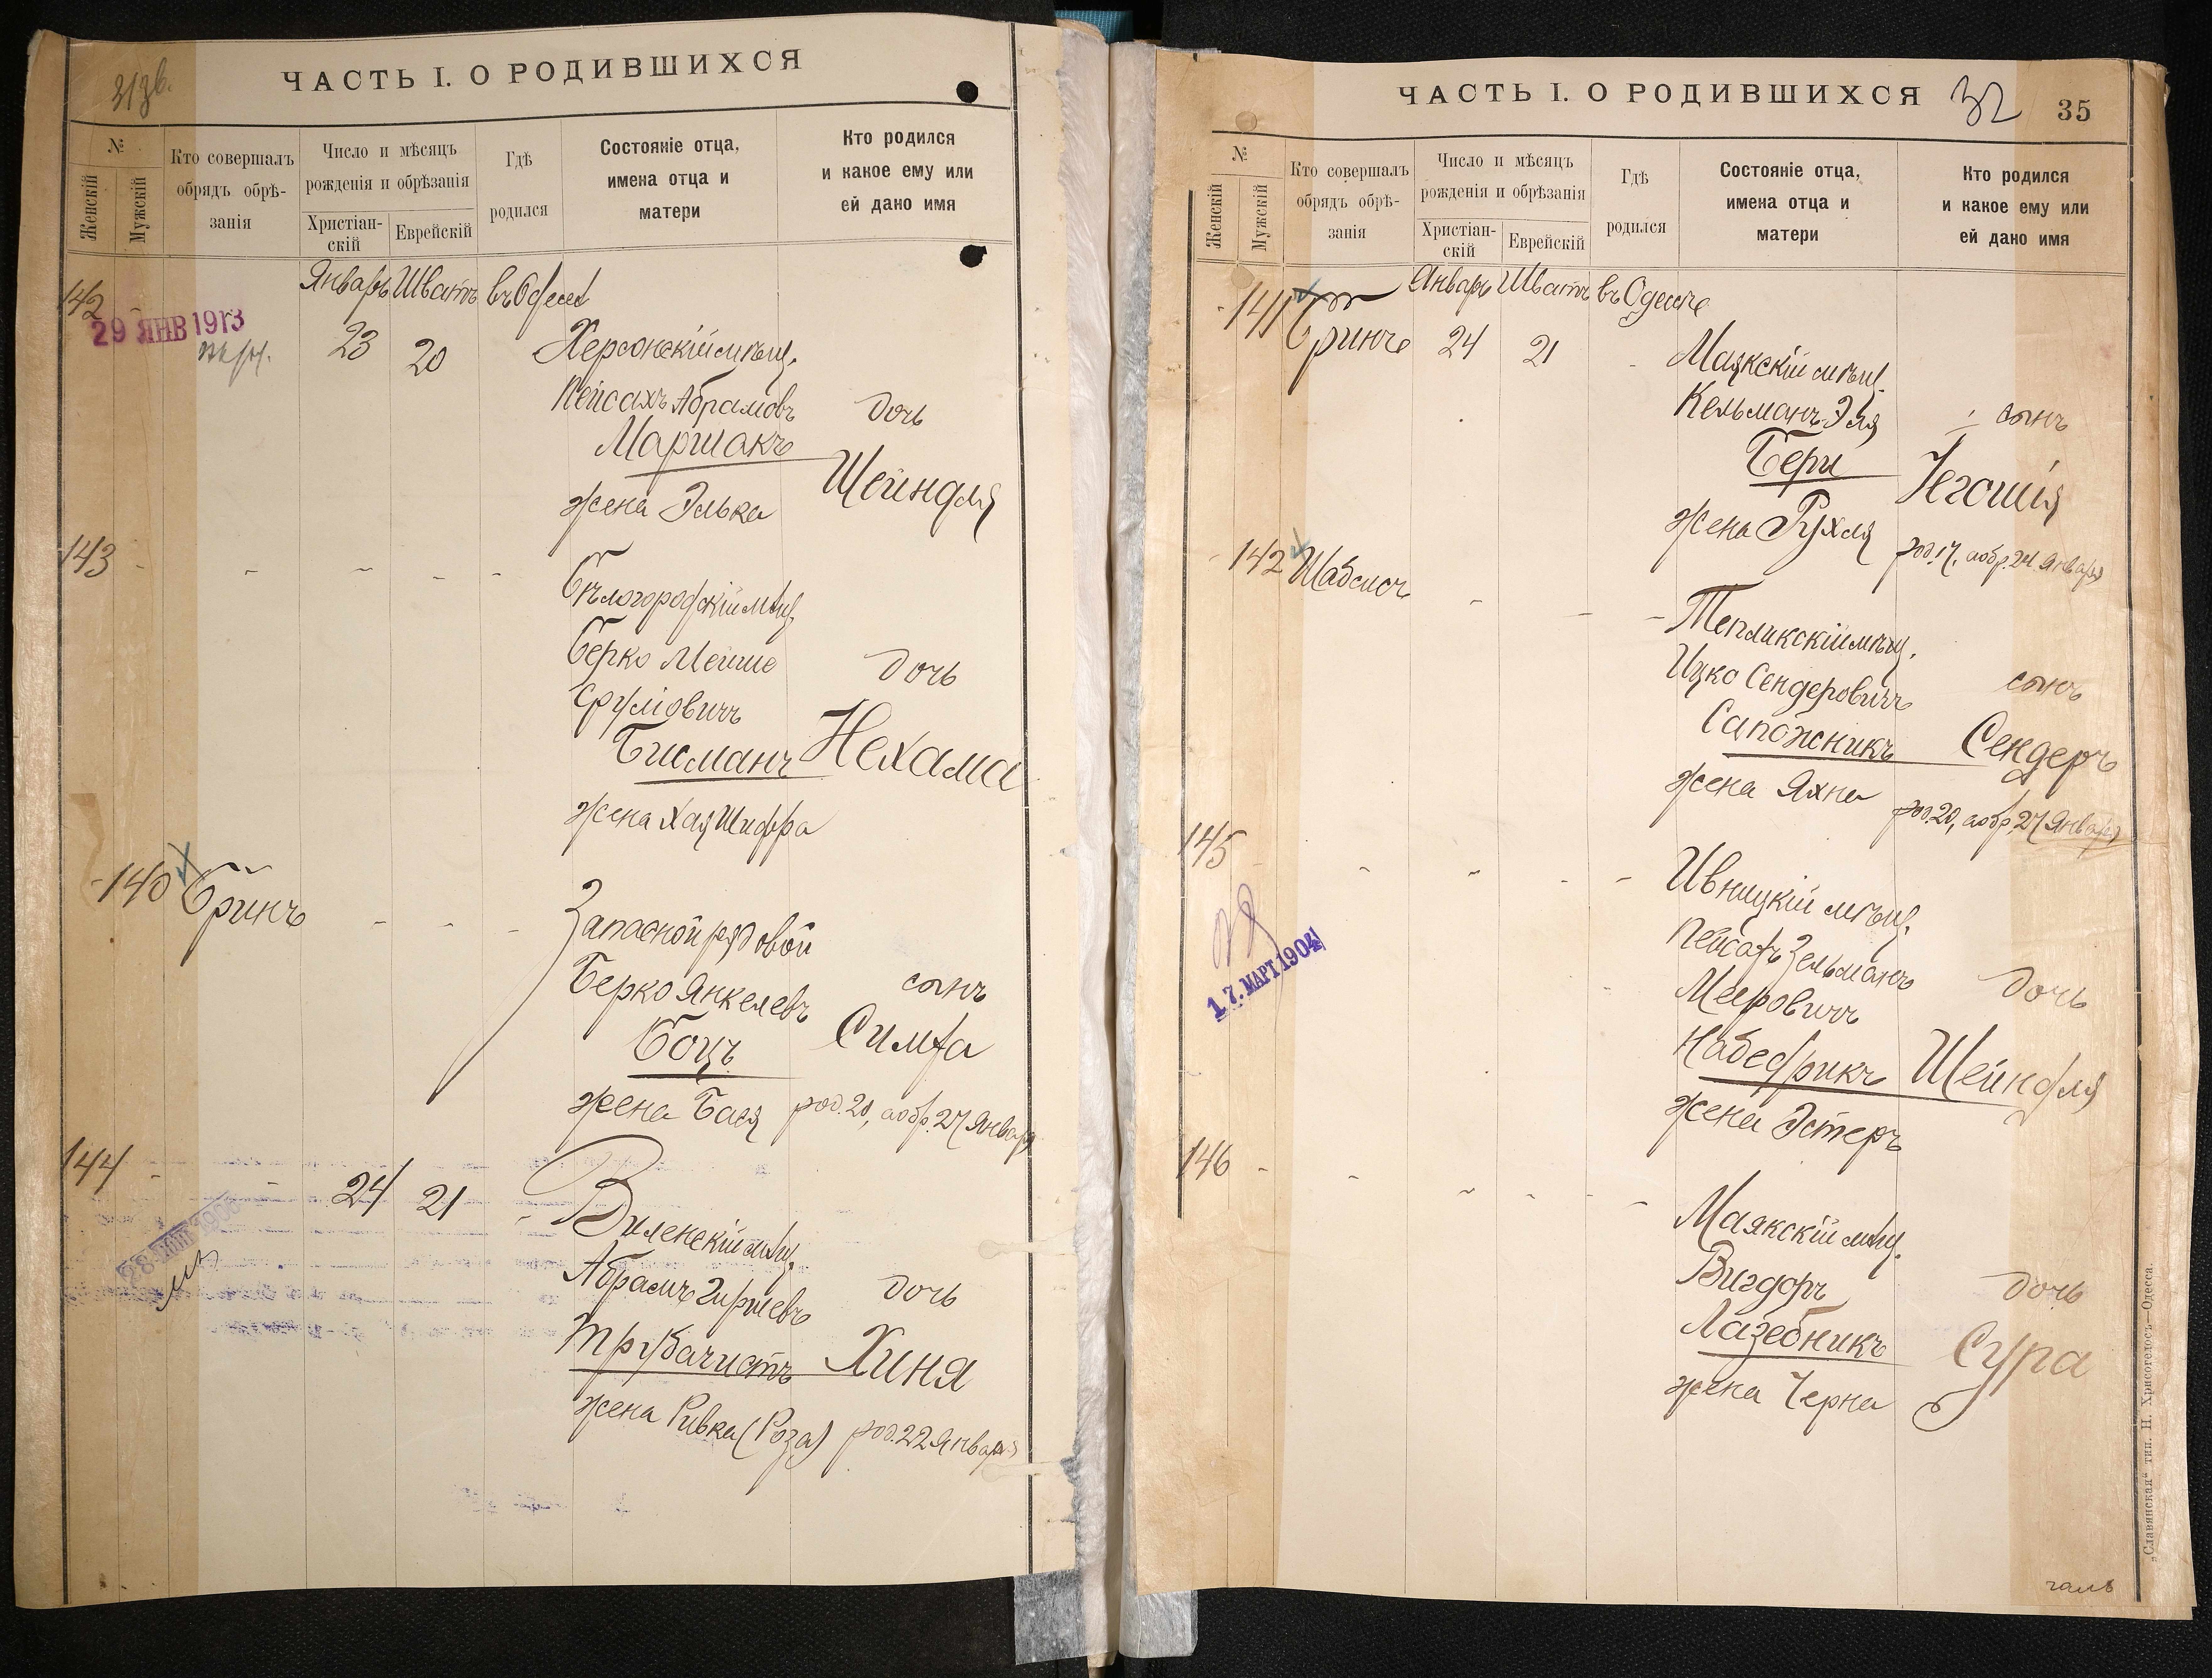 ЧАСТЬ I. О РОДИВШИХСЯ
№
Женскій
Мужскій
Кто совершалъ
обрядъ обрѣ-
занія
Число и мѣсяцъ
рожденія и обрѣзанія
Христіан-
скій
Еврейскій
Гдѣ
родился
Состояніе отца,
имена отца и
матери
Кто родился
и какое ему или
ей дано имя
Январь Шватъ въ Одессѣ
142
29 ЯНВ 1913
23 20
Херсонскій мѣщ.
Пейсахъ Абрамовъ
Маршакъ
жена Элька
дочь
Шейндля
143
Бѣлогородскій мѣщ.
Берко Мейше
Сруліовичъ
Бисманъ
жена Хая Шифра
дочь
Нехама
140 Бринъ
Запасной рядовой
Берко Янкелевъ
Боцъ
жена Бася
сынъ
Симха
род. 20, а обр. 27 Января
144 24 21
Виленскій мѣщ.
Абрамъ Гиршевъ
Трубачистъ
жена Ривка (Роза)
дочь
Хиня
род. 22 Января
ЧАСТЬ I. О РОДИВШИХСЯ
32
35
№
Женскій
Мужскій
Кто совершалъ
обрядъ обрѣ-
занія
Число и мѣсяцъ
рожденія и обрѣзанія
Христіан-
скій
Еврейскій
Гдѣ
родился
Состояніе отца,
имена отца и
матери
Кто родился
и какое ему или
ей дано имя
Январь Шватъ въ Одессѣ
141 Бринъ 24 21
Маякскій мѣщ.
Кельманъ-Эля
Бери
жена Рухля
сынъ
Іегошія
род. 17, а обр. 24 Января
142 Шабсисъ
Тепликскій мѣщ.
Ицко Сендеровичъ
Сапожникъ
жена Яхна
сынъ
Сендеръ
род. 20, а обр. 27 Января
145
17. МАРТ 1904
Ивницкій мѣщ.
Пейсахъ Зельманъ
Мееровичъ
Набедрикъ
жена Эстеръ
дочь
Шейндля
146
Маякскій мѣщ.
Вигдоръ
Лазебникъ
жена Черна
дочь
Сура
„Славянская“ тип. Н. Хрисогелосъ—Одесса.